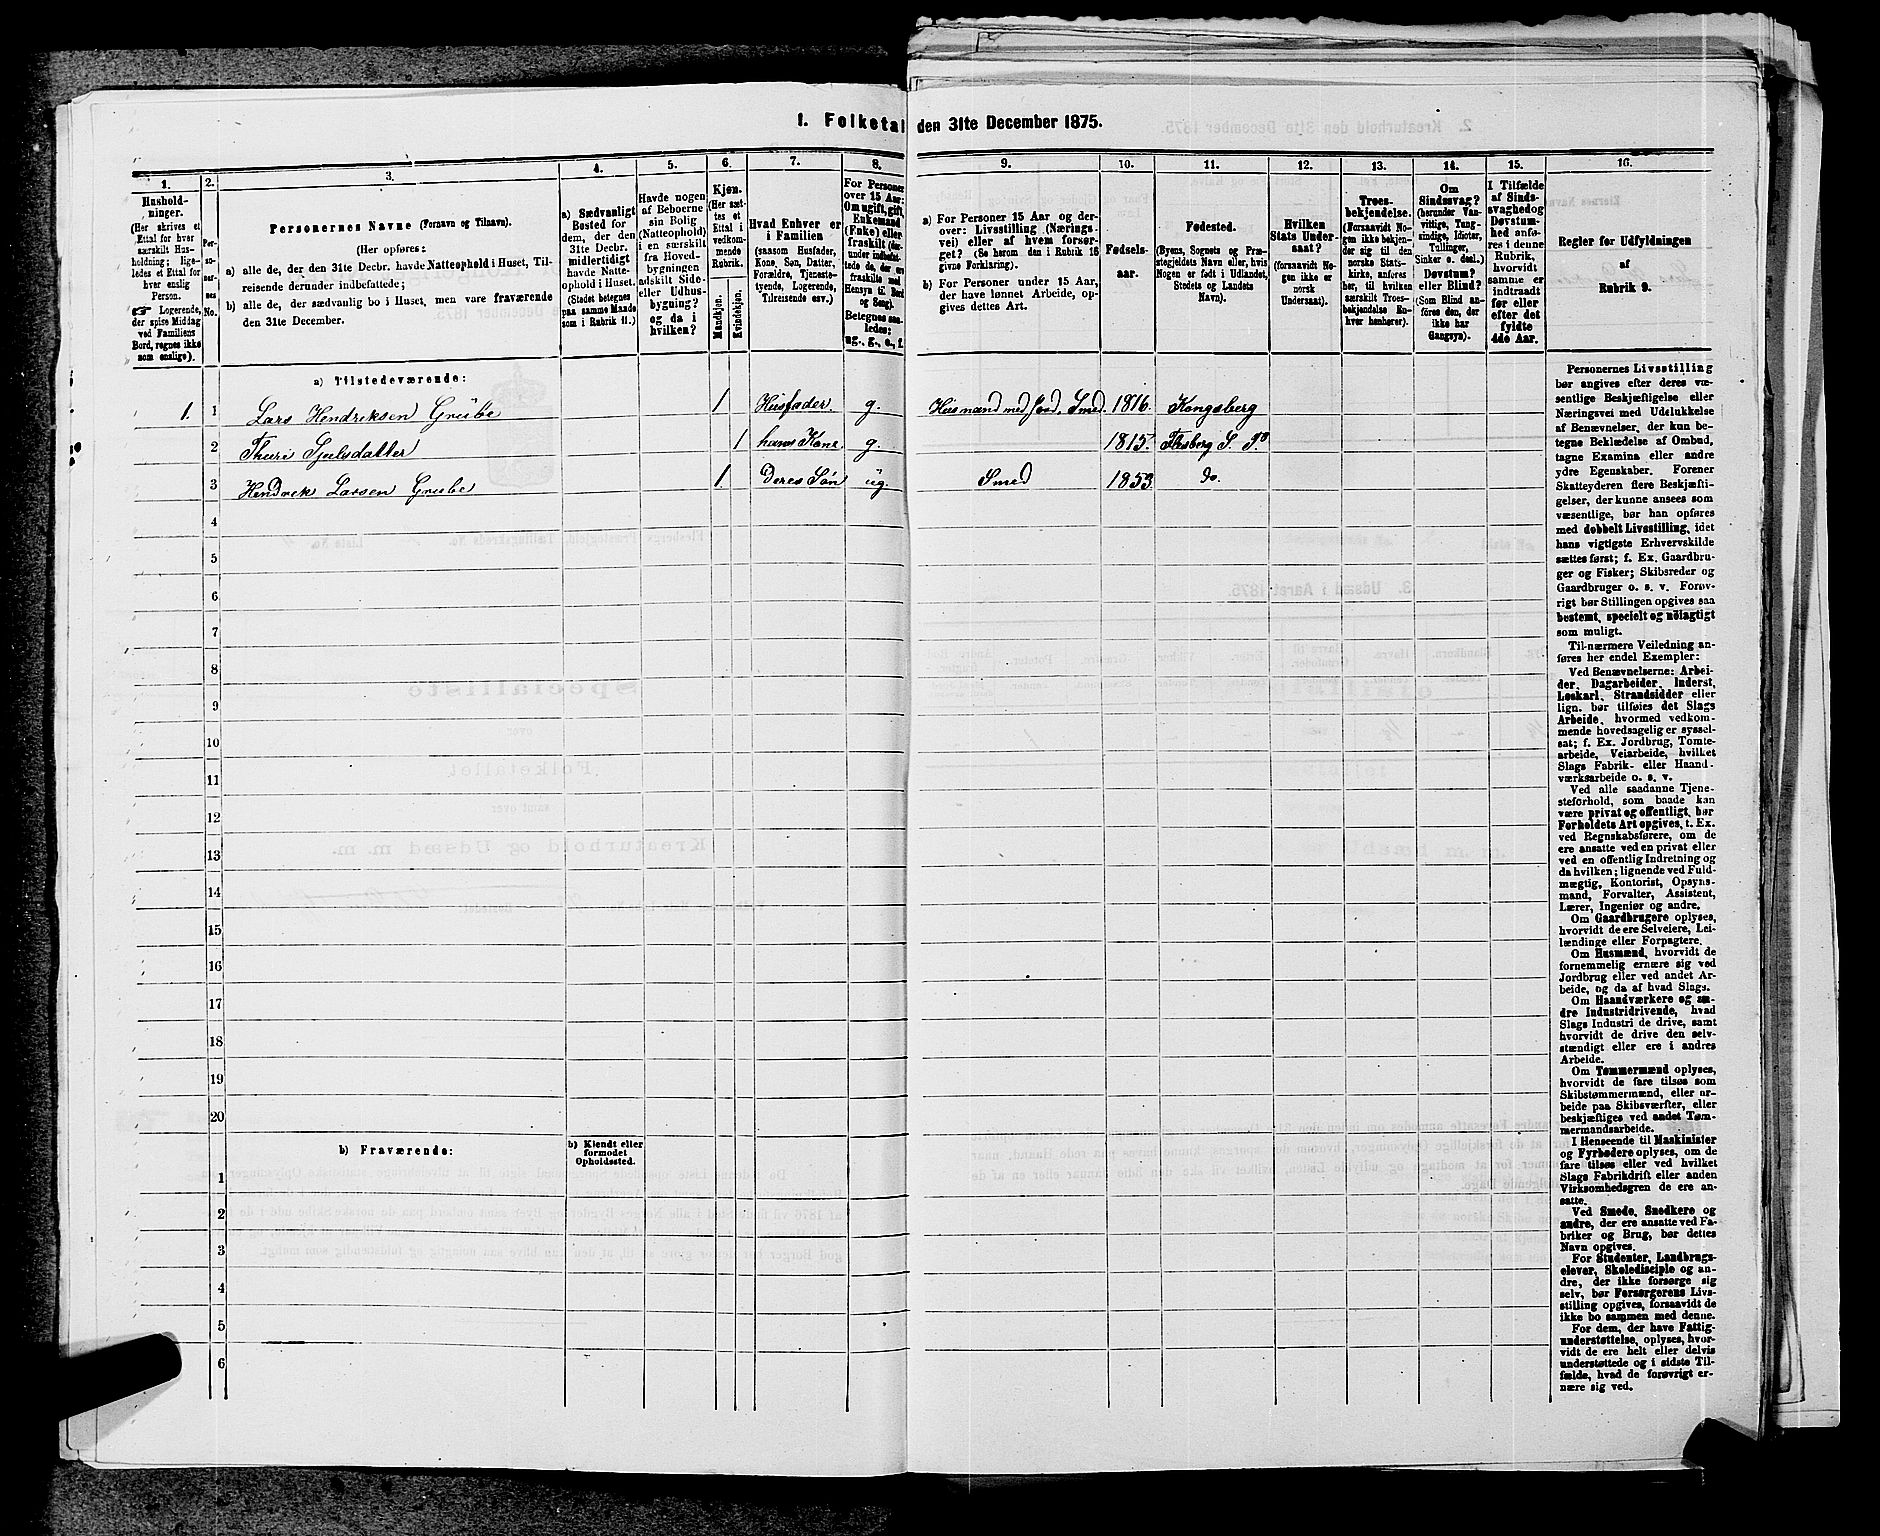 1. Folketal den 31te December 1875.
1. 2. 3. 4. 5. 6. 7. 8. 9. 10. 11. 12. 13. 14. 15. 16.
Hushold-
ninger.
(Her skrives et
Ettal for hver
særskilt Hus-
holdning; lige-
ledes et Ettal for
hver enslig
Person.
☞ Logerende,
der spise Middag
ved Familiens
Bord, regnes ikke
som enslige).
Per-
so-
ner-
nes
No.
Personernes Navne (Fornavn og Tilnavn).
(Her opføres:
a) alle de, der den 31te Decbr. havde Natteophold i Huset, Til-
reisende derunder indbefattede;
b) alle de, der sædvanlig bo i Huset, men vare fraværende
den 31te December.
a) Sædvanligt
Bosted for
dem, der den
31te Decbr.
midlertidigt
havde Natte-
ophold i Huset.
(Stedet betegnes
paa samme Maade
som i Rubrik 11.)
Havde nogen
af Beboerne
sin Bolig
(Natteophold)
i en særskilt
fra Hoved-
bygningen
adskilt Side-
eller Udhus-
bygning?
og da i
hvilken?
Kjøn.
(Her sæt-
tes et
Ettal i
vedkom-
mende
Rubrik.
Mandkjøn.
Kvindekjøn.
Hvad Enhver er
i Familien
(saasom Husfader,
Kone, Søn, Datter,
Forældre, Tjeneste-
tyende, Logerende,
Tilreisende osv.)
For Personer
over 15 Aar:
Om ugift, gift,
Enkemand
(Enke) eller
fraskilt (der-
under indbefat-
tede de, der ere
fraskilte med
Hensyn til Bord
og Seng).
Betegnes saa-
ledes:
ug., g., e., f.
a) For Personer 15 Aar og der-
over: Livsstilling (Nærings-
vei) eller af hvem forsør-
get? (Se herom den i Rubrik 16
givne Forklaring).
b) For Personer under 15 Aar,
der have lønnet Arbeide, op-
gives dettes Art.
Fødsels-
aar.
Fødested.
(Byens, Sognets og Præ-
stegjeldets Navn eller, hvis
Nogen er født i Udlandet,
Stedets og Landets
Navn).
Hvilken
Stats Under-
saat?
(forsaavidt No-
gen ikke er
norsk
Undersaat).
Troes-
bekjendelse.
(Forsaavidt No-
gen ikke bekjen-
der sig til den
norske Stats-
kirke, anføres
her, til hvilken
særskilt Troes-
bekjendelse En-
hver henhører).
Om
Sindssvag?
(herunder Van-
vittige, Tung-
sindige, Idioter,
Tullinger,
Sinker o. desl.)
Døvstum?
eller Blind?
(Som Blind an-
føres den, der
ikke har
Gangsyn).
I Tilfælde
af Sinds-
svaghed og
Døvstum-
hed anfø-
res i denne
Rubrik,
hvorvidt
samme er
indtraadt
før eller
efter det
fyldte
4de Aar.
Regler for Udfyldningen
af
Rubrik 9.
a) Tilstedeværende:
1. 1 Lars Hendriksen Grübe 1 Husfader. g. Husmand med Jord, Smed. 1816. Kongsberg
2 Thuri Gjulsdatter 1 hans Kone. g. 1815. Flesberg S. Pd
3 Hendrik Larsen Grübe 1. Deres Søn ug. Smed 1853. Do.
4
5
6
7
8
9
10
11
12
13
14
15
16
17
18
19
20
b) Fraværende:
b) Kjendt eller
formodet
Opholdssted.
1
2
3
4
5
6
Personernes Livsstilling
bør angives efter deres væ-
sentlige Beskjæftigelse eller
Næringsvei med Udelukkelse
af Benævnelser, der kun be-
tegne Beklædelse af Ombud,
tagne Examina eller andre
ydre Egenskaber. Forener
Skatteyderen flere Beskjæfti-
gelser, der kunne ansees som
væsentlige, bør han opføres
med dobbelt Livsstilling, idet
hans vigtigste Erhvervskilde
sættes først; f. Ex. Gaardbru-
ger og Fisker; Skibsreder og
Gaardbruger o. s. v. Forøv-
rigt bør Stillingen opgives saa
bestemt, specielt og nøiagtigt
som muligt.
Til nærmere Veiledning an-
føres her endel Exempler:
Ved Benævnelserne: Arbei-
der, Dagarbeider, Inderst,
Løskarl, Strandsidder eller
lign. bør tilføies det Slags
Arbeide, hvormed vedkom-
mende hovedsagelig er syssel-
sat; f. Ex. Jordbrug, Tomte-
arbeide, Veiarbeide, hvilket
Slags Fabrik- eller Haand-
værksarbeide o. s. v.
Ved alle saadanne Tjene-
steforhold, som baade kan
være privat og offentligt, bør
Forholdets Art opgives, t. Ex.
ved Regnskabsførere, om de
ere ansatte ved en privat eller
ved en offentlig Indretning og
da hvilken; lignende ved Fuld-
mægtig, Kontorist, Opsyns-
mand, Forvalter, Assistent,
Lærer, Ingeniør og andre.
Om Gaardbrugere oplyses,
hvorvidt de ere Selveiere, Lei-
lændinge eller Forpagtere.
Om Husmænd, hvorvidt de
fornemmelig ernære sig ved
Jordbrug eller ved andet Ar-
beide, og da af hvad Slags.
Om Haandværkere og an-
dre Industridrivende, hvad
Slags Industri de drive, samt
hvorvidt de drive den selv-
stændigt eller ere i andres
Arbeide.
Om Tømmermænd oplyses,
hvorvidt de fare tilsøs som
Skibstømmermænd, eller ar-
beide paa Skibsværfter, eller
beskjæftiges ved andet Tøm-
mermandsarbeide.
I Henseende til Maskinister
og Fyrbødere oplyses, om de
fare tilsøs eller ved hvilket
Slags Fabrikdrift eller anden
Virksomhedsgren de ere an-
satte.
Ved Smede, Snedkere og
andre, der ere ansatte ved Fa-
briker og Brug, bør dettes
Navn opgives.
For Studenter, Landbrugs-
elever, Skoledisciple og an-
dre, der ikke forsørge sig
selv, bør Forsørgerens Livs-
stilling opgives, forsaavidt de
ikke bo sammen med denne.
For dem, der have Fattig-
understøttelse, oplyses, hvor-
vidt de ere helt eller delvis
understøttede og i sidste Til-
fælde, hvad de forøvrigt er-
nære sig ved.